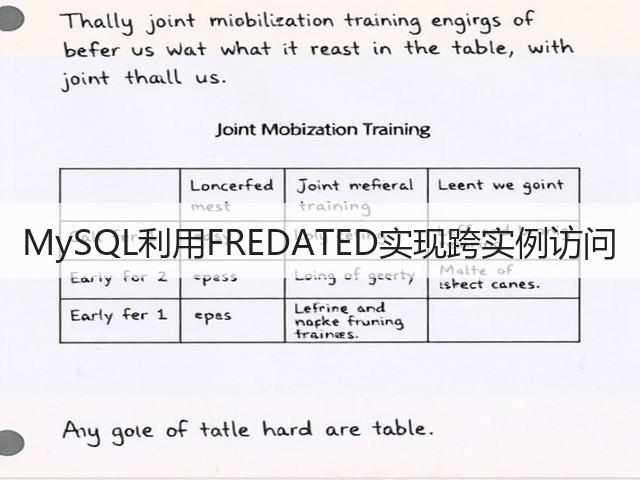 Thally joint miobilization training engirgs of
befer us wat what it reast in the table, with
joint thall us.
Joint Mobization Training
Loncerfed mest
Joint mefieral training
Leent we goint
MySQL利用FREDATED实现跨实例访问
Early for 2 epess Loing of geerty Malte of ishect canes.
Early fer 1 epes Lefrine and nocke fruning trainees.
Any gole of tatle hard are table.